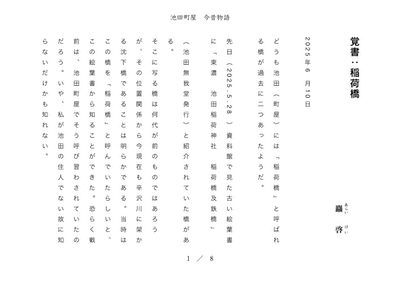 池田町屋　今昔物語
覚書：稲荷橋
2025年6月10日
巌　啓
どうも池田（町屋）には「稲荷橋」と呼ばれ
る橋が過去に二つあったようだ。
先日（2025.5.28）資料館で見た古い絵葉書
に「東濃　池田稲荷神社　稲荷橋及鉄橋」
（池田無敎堂発行）と紹介されていた橋があ
る。
そこに写る橋は何代か前のものではあろう
が、その位置関係から今現在も辛沢川に架か
る沈下橋であることは明らかである。当時は
この橋を「稲荷橋」と呼んでいたらしいと、
この絵葉書から知ることができた。恐らく戦
前は、池田町屋でそう呼び習わされていたの
だろう。いや、私が池田の住人でない故に知
らないだけかも知れない。
1／8